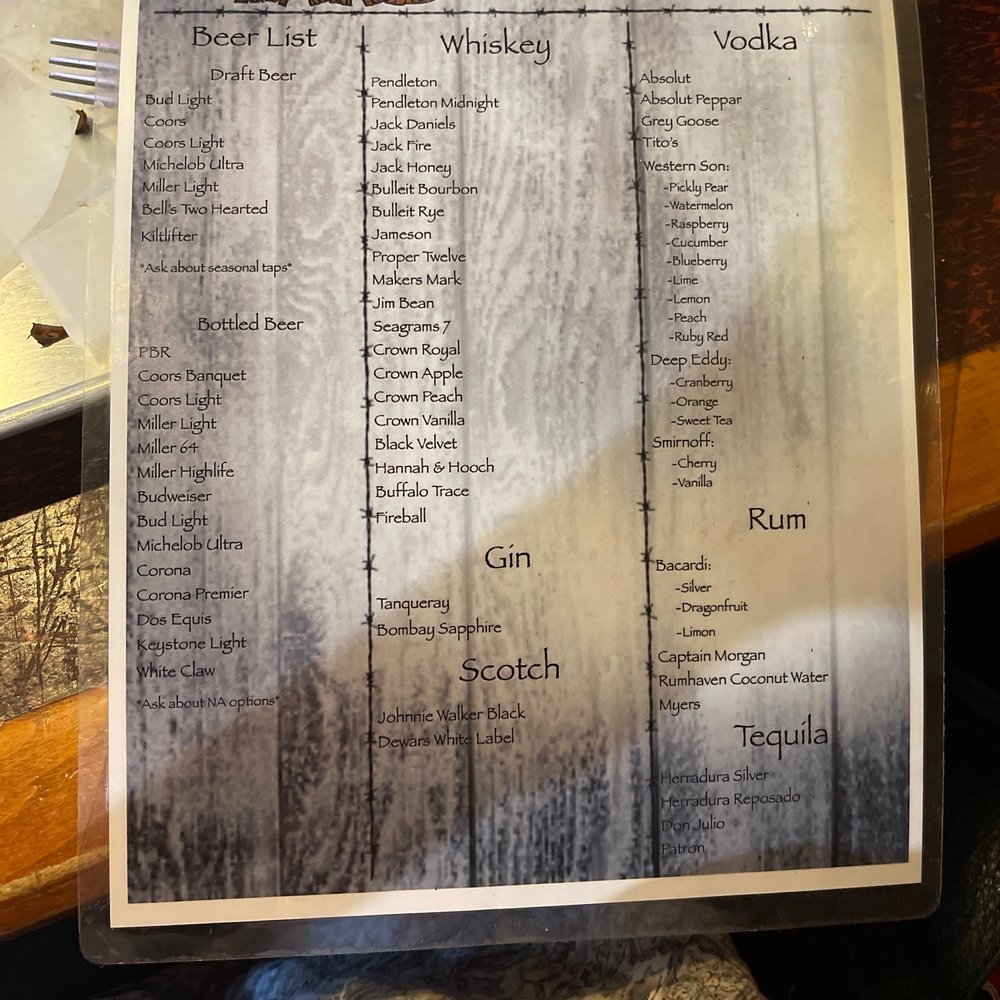 Beer List
Draft Beer
Bud Light
Coors
Coors Light
Michelob Ultra
Miller Light
Bell's Two Hearted
Kiltlifter
*Ask about seasonal taps*
Bottled Beer
PBR
Coors Banquet
Coors Light
Miller Light
Miller 64
Miller Highlife
Budweiser
Bud Light
Michelob Ultra
Corona
Corona Premier
Dos Equis
Keystone Light
White Claw
*Ask about NA options*
Whiskey
Pendleton
Pendleton Midnight
Jack Daniels
Jack Fire
Jack Honey
Bulleit Bourbon
Bulleit Rye
Jameson
Proper Twelve
Makers Mark
Jim Bean
Seagrams 7
Crown Royal
Crown Apple
Crown Peach
Crown Vanilla
Black Velvet
Hannah & Hooch
Buffalo Trace
Fireball
Gin
Tanqueray
Bombay Sapphire
Scotch
Johnnie Walker Black
Dewars White Label
Vodka
Absolut
Absolut Peppar
Grey Goose
Tito's
Western Son:
-Pickly Pear
-Watermelon
-Raspberry
-Cucumber
-Blueberry
-Lime
-Lemon
-Peach
-Ruby Red
Deep Eddy:
-Cranberry
-Orange
-Sweet Tea
Smirnoff:
-Cherry
-Vanilla
Rum
Bacardi:
-Silver
-Dragonfruit
-Limon
Captain Morgan
Rumhaven Coconut Water
Myers
Tequila
Herradura Silver
Herradura Reposado
Don Julio
Patron